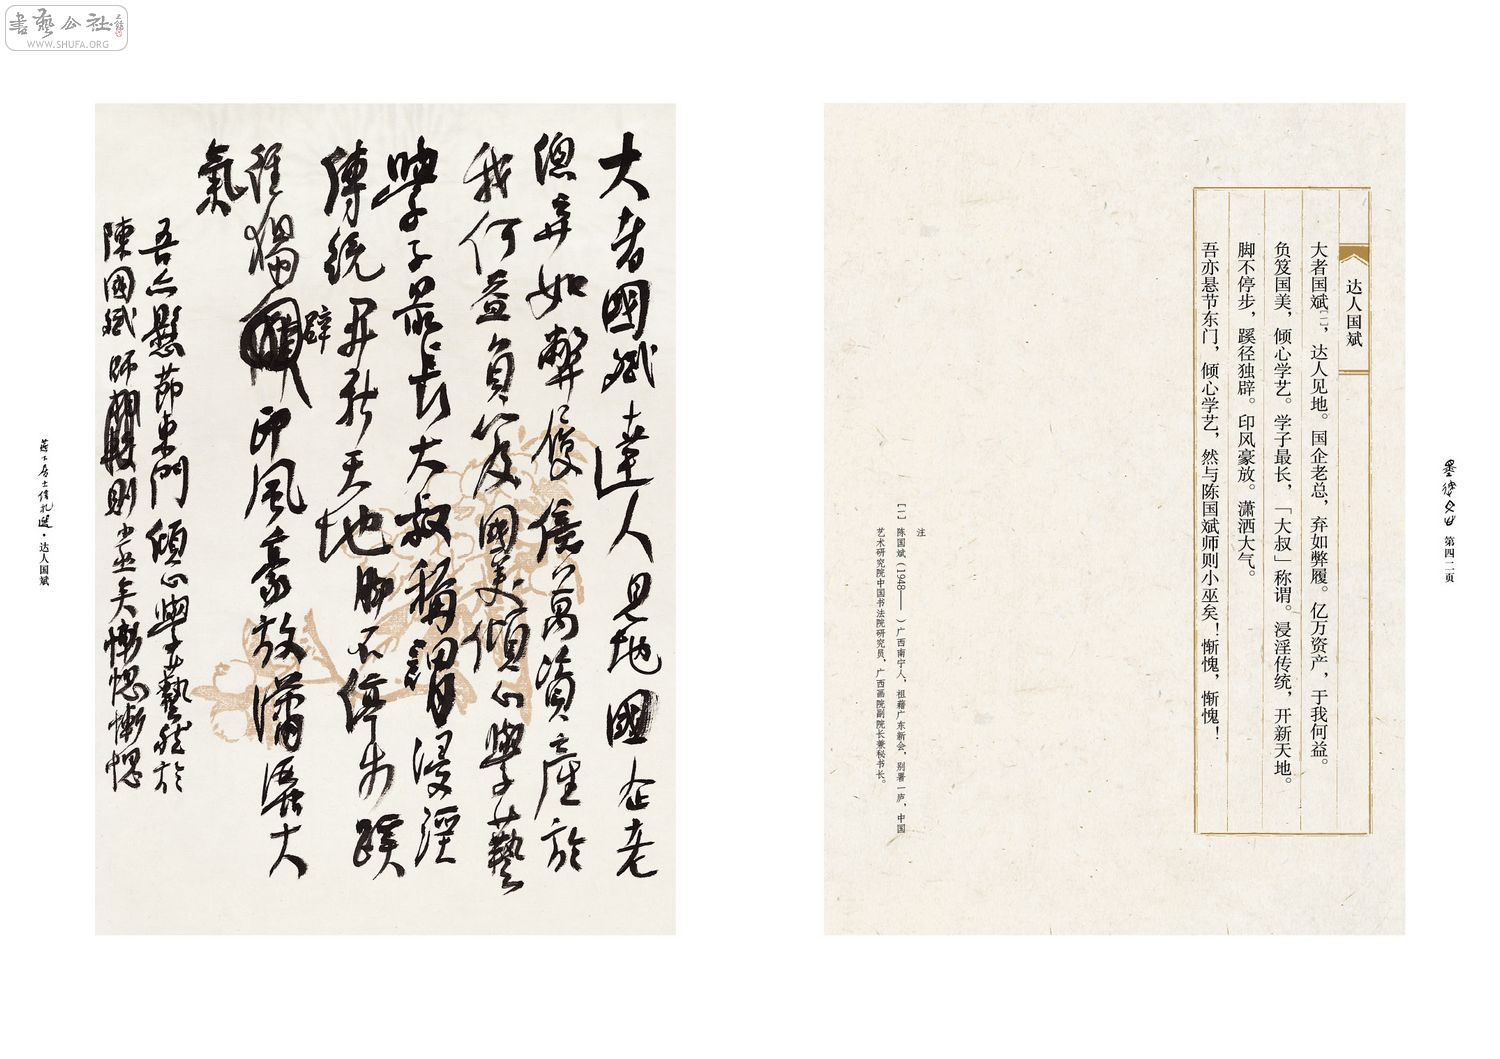 書藝公社
WWW.SHUFA.ORG
墨緣 第四二页
达人国斌
大者国斌[一]，达人见地。国企老总，弃如弊履。亿万资产，于我何益。
负笈国美，倾心学艺。学子最长，「大叔」称谓。浸淫传统，开新天地。
脚不停步，蹊径独辟。印风豪放。潇洒大气。
吾亦悬节东门，倾心学艺，然与陈国斌师则小巫矣！惭愧，惭愧！
注
[一] 陈国斌（1948—— ）广西南宁人，祖籍广东新会，别署一庐，中国
艺术研究院中国书法院研究员，广西画院副院长兼秘书长。
大者國斌達人見地國企老
總弃如弊履億萬資產於
我何益負笈國美傾心學藝
學子最長大叔稱謂浸淫
傳統開新天地脚不停步蹊
辟
徑獨印風豪放瀟灑大
氣
吾亦懸節東門傾心學藝然於
陳國斌師則小巫矣慚愧慚愧
居士信札選·达人国斌